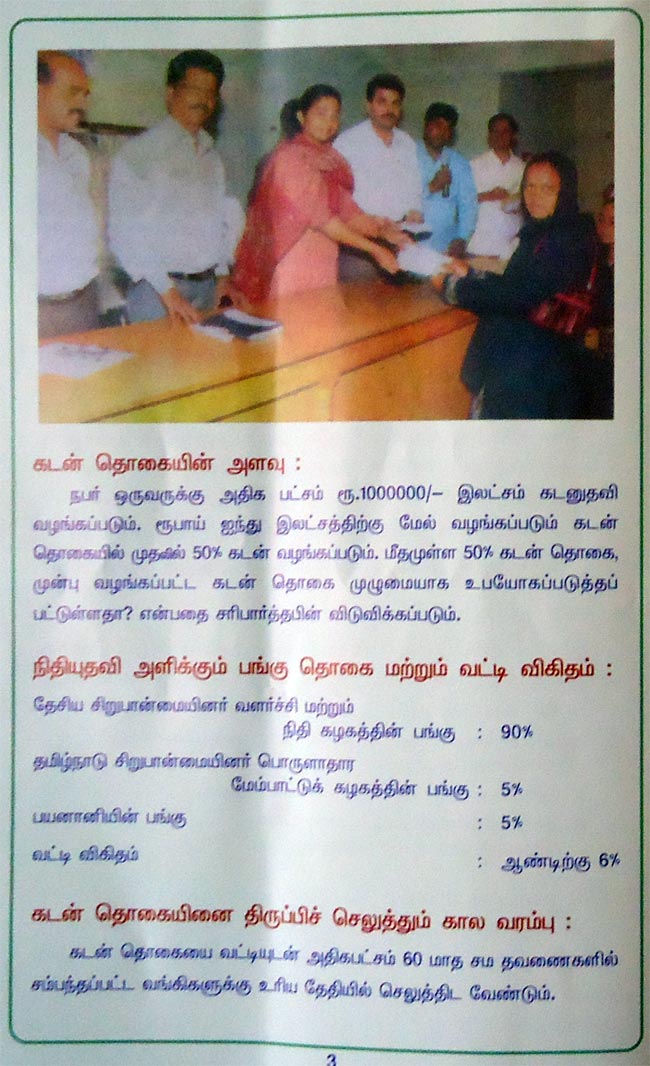 கடன் தொகையின் அளவு :
நபர் ஒருவருக்கு அதிக பட்சம் ரூ.1000000/– இலட்சம் கடனுதவி
வழங்கப்படும். ரூபாய் ஐந்து இலட்சத்திற்கு மேல் வழங்கப்படும் கடன்
தொகையில் முதலில் 50% கடன் வழங்கப்படும். மீதமுள்ள 50% கடன் தொகை,
முன்பு வழங்கப்பட்ட கடன் தொகை முழுமையாக உபயோகப்படுத்தப்
பட்டுள்ளதா? என்பதை சரிபார்த்தபின் விடுவிக்கப்படும்.
நிதியுதவி அளிக்கும் பங்கு தொகை மற்றும் வட்டி விகிதம் :
தேசிய சிறுபான்மையினர் வளர்ச்சி மற்றும்
நிதி கழகத்தின் பங்கு : 90%
தமிழ்நாடு சிறுபான்மையினர் பொருளாதார
மேம்பாட்டுக் கழகத்தின் பங்கு : 5%
பயனானியின் பங்கு : 5%
வட்டி விகிதம் : ஆண்டிற்கு 6%
கடன் தொகையினை திருப்பிச் செலுத்தும் கால வரம்பு :
கடன் தொகையை வட்டியுடன் அதிகபட்சம் 60 மாத சம தவணைகளில்
சம்பந்தப்பட்ட வங்கிகளுக்கு உரிய தேதியில் செலுத்திட வேண்டும்.
3